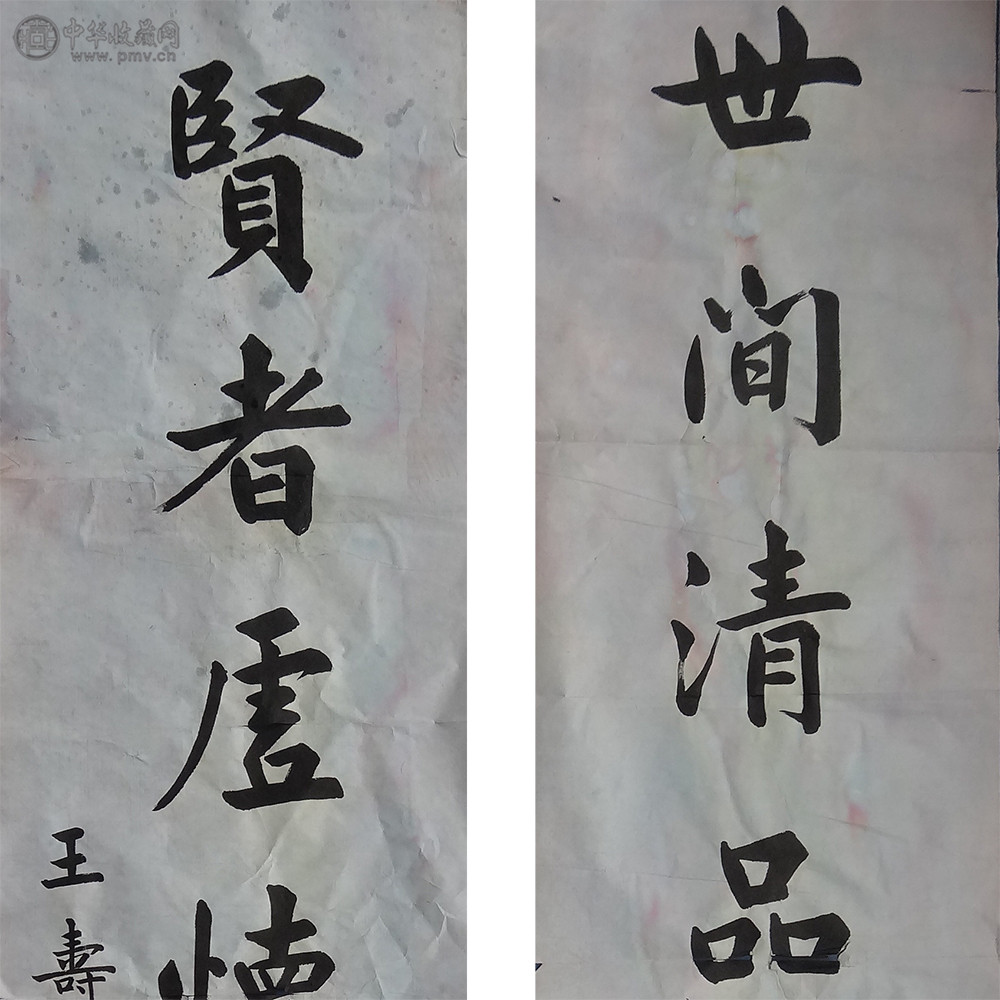 世間清品
賢者虛懷
王壽
中华收藏网
www.pmv.cn